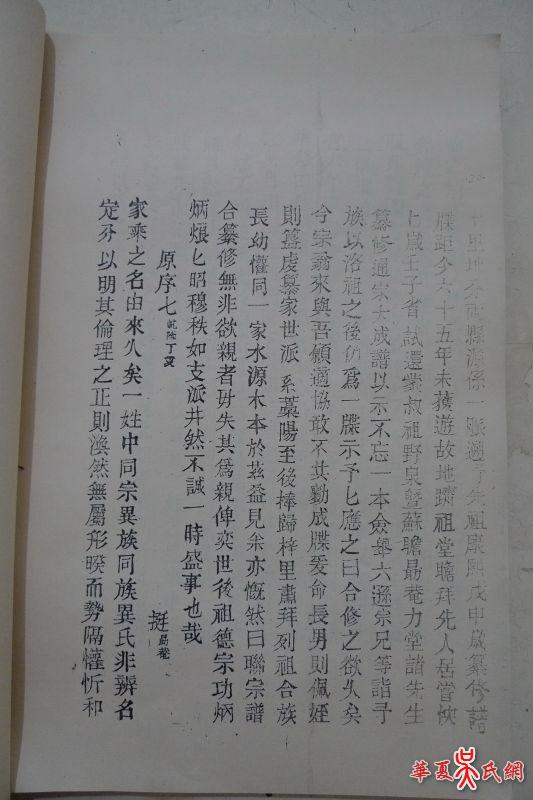 里地分兩縣源係一脈適予先祖康熙戊申歲纂修譜
牒距今六十五年未獲遊故地躋祖堂瞻拜先人居嘗怏
七歲壬子省試還蒙叔祖野泉暨蘇瞻最菴力堂諸先生
纂修通宗大成譜以示不忘一本僉舉六遜宗兄等詣予
族以洛祖之後仍為一牒示予七應之曰合修之欲久矣
今宗翁來與吾願適協敢不共勷成牒爰命長男則佩姪
則簋虔纂家世派系藁陽至後捧歸梓里肅拜列祖合族
長幼懽同一家水源木本於茲益見余亦慨然曰聯宗譜
合纂修無非欲親者毋失其為親俾奕世後祖德宗功炳
炳烺七昭穆秩如支派井然不誠一時盛事也哉
原序七乾隆丁
挺
家乘之名由來久矣一姓中同宗異族同族異氏非辨名
定分以明其倫理之正則渙然無屬形暌而勢隔懽忻和
華夏吳氏網